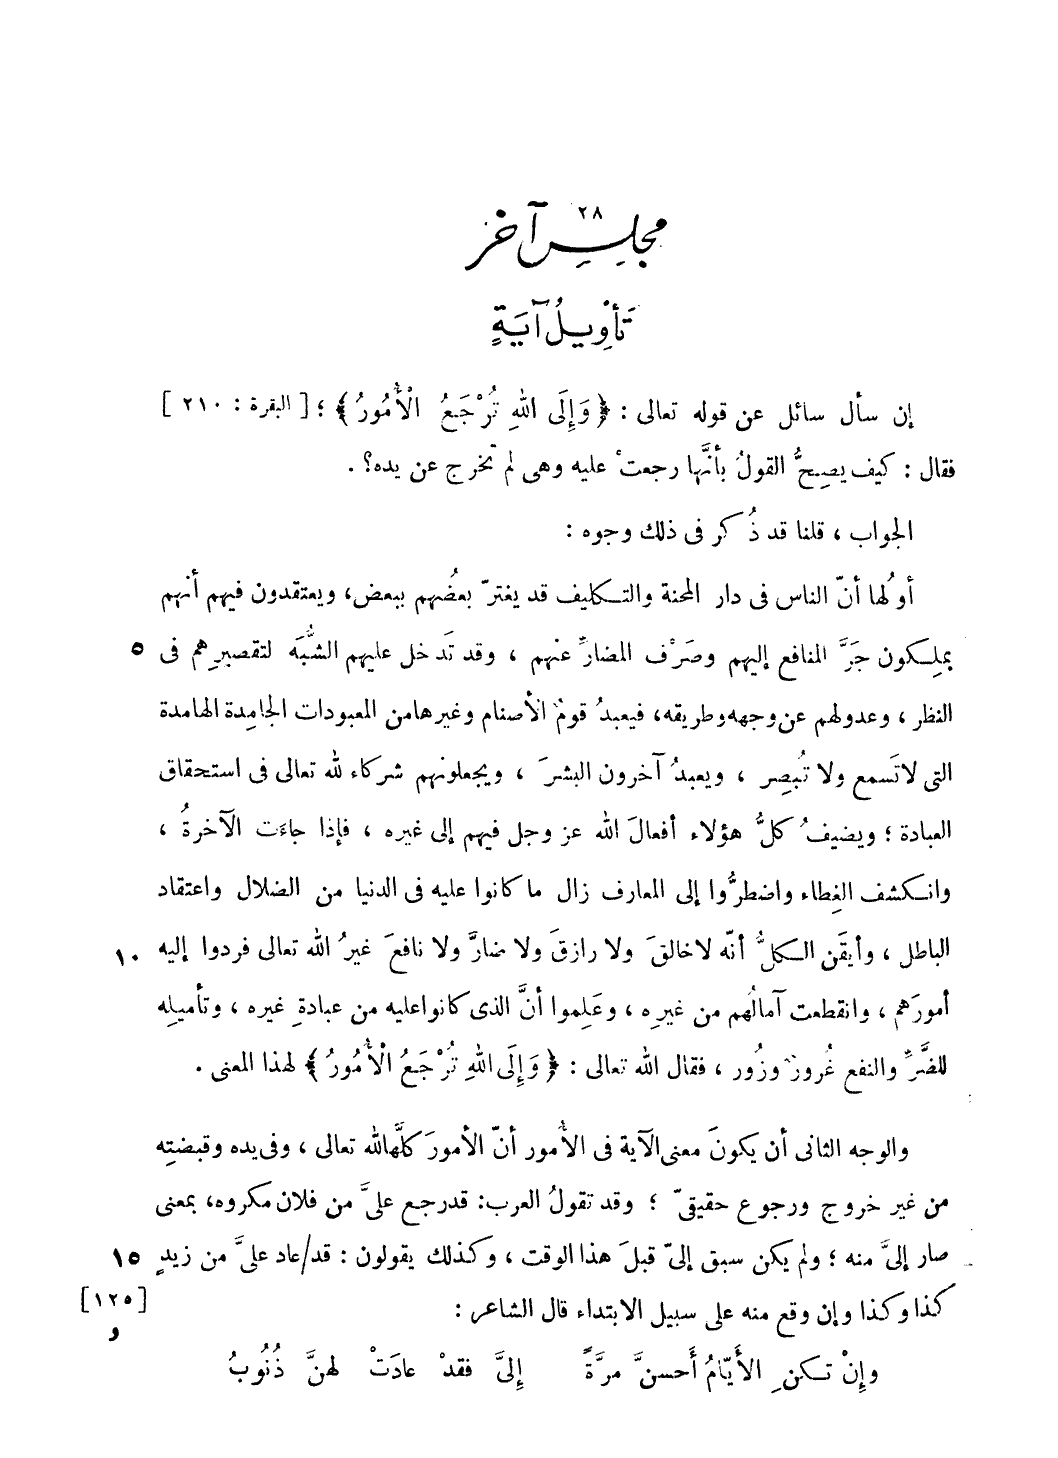 ٢٨
مجلس آخر
تَأْوِيلُ آيَةٍ
إن سأل سائل عن قوله تعالى : ﴿ وَإِلَى اللهِ تُرْجَعُ الْأُمُورُ ﴾ ؛ [ البقرة : ٢١٠ ]
فقال : كيف يصِحُّ القولُ بأنَّها رجعتْ عليه وهى لم تخرج عن يده؟ .
الجواب ، قلنا قد ذُكر فى ذلك وجوه :
أولُها أنّ الناس فى دار المحنة والتكليف قد يغترّ بعضُهم ببعض، ويعتقدون فيهم أنهم
يملِكون جَرَّ المنافع إليهم وصَرْف المضارِّ عنهم ، وقد تَدخل عليهم الشُّبَه لتقصيرِهم فى ٥
النظر ، وعدولهم عن وجهه وطريقه، فيعبدُ قومٌ الأصنام وغيرها من المعبودات الجامِدة الهامدة
التى لا تَسمع ولا تُبصِر ، ويعبدُ آخرون البشرَ ، ويجعلونهم شركاء لله تعالى فى استحقاق
العبادة ؛ ويضيفُ كلُّ هؤلاء أفعالَ الله عز وجل فيهم إلى غيره ، فإذا جاءت الآخرةُ ،
وانكشف الغِطاء واضطرُّوا إلى المعارف زال ما كانوا عليه فى الدنيا من الضلال واعتقاد
الباطل ، وأيقَن الكلُّ أنّه لا خالقَ ولا رازقَ ولا ضارَّ ولا نافعَ غيرُ الله تعالى فردوا إليه ١٠
أمورَهم ، وانقطعت آمالُهم من غيرِه ، وعَلِموا أنَّ الذى كانوا عليه من عبادةِ غيره ، وتأميلِه
للضَّرِّ والنفع غُرورٌ وزُور ، فقال الله تعالى : ﴿ وَإِلَى اللهِ تُرْجَعُ الْأُمُورُ ﴾ لهذا المعنى .
والوجه الثانى أن يكونَ معنى الآية فى الأمور أنّ الأمورَ كلَّها لله تعالى ، وفى يده وقبضتِه
من غير خروج ورجوع حقيقىّ ؛ وقد تقولُ العرب: قد رجع علىَّ من فلان مكروه، بمعنى
صار إلىَّ منه ؛ ولم يكن سبق إلىّ قبلَ هذا الوقت ، وكذلك يقولون : قد/عاد علىَّ من زيدٍ ١٥
كذا وكذا وإن وقع منه على سبيل الابتداء قال الشاعر : [١٢٥]
و
وإنْ تكنِ الأَيّامُ أَحسنَّ مرَّةً إِلىَّ فقدْ عادَتْ لهنَّ ذُنُوبُ